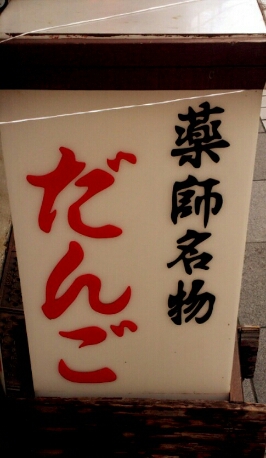 薬師名物
だんご